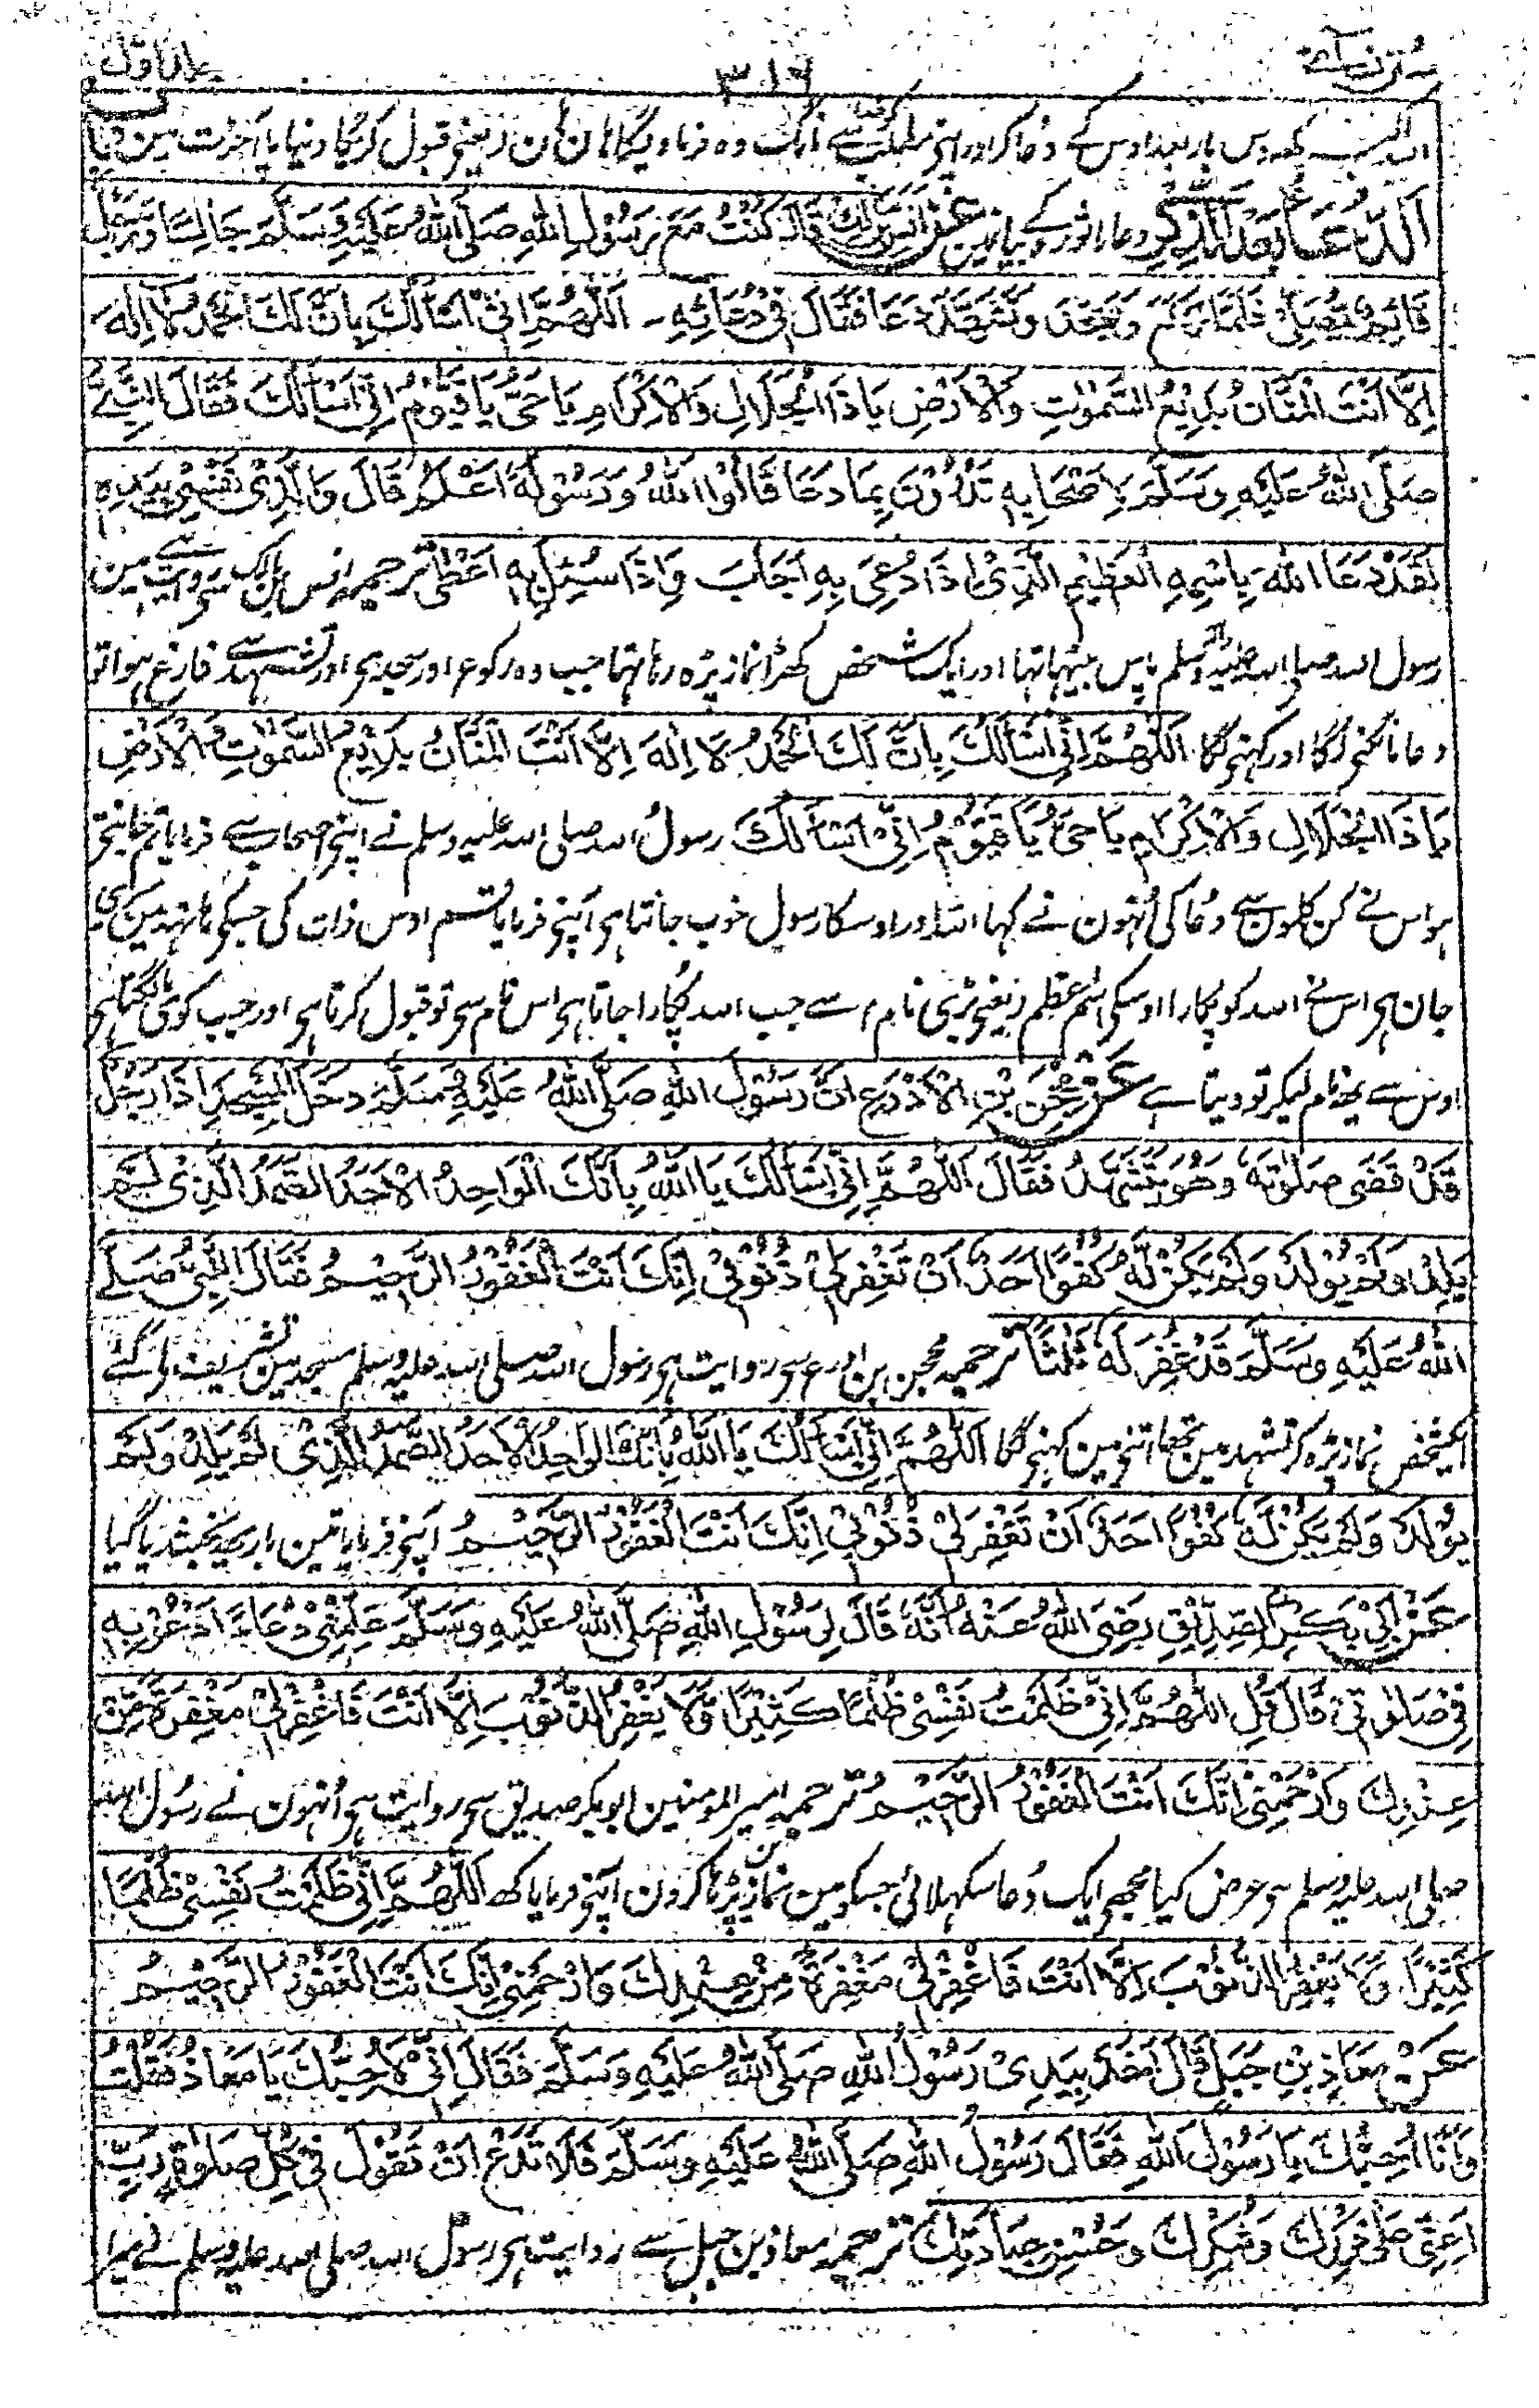 جلد اول
۳۱۶
سنن نسائی
اللہ اکبر کہہ دس بار بعد اوس کے دُعا کر اور اپنی مطلب اللہ سے مانگ وہ فرماویگا ہان ہان (یعنی قبول کریگا دنیا یا آخرت مین)
اَلدُّعَاءُ بَعْدَ الذِّكْرِ دعا ماثور کے بیان مین عَنْ اَنَسِ بْنِ مَالِكٍ قَالَ كُنْتُ مَعَ رَسُوْلِ اللّٰهِ صَلَّى اللّٰهُ عَلَيْهِ وَسَلَّمَ جَالِسًا وَرَجُلٌ
قَائِمٌ يُّصَلِّيْ فَلَمَّا رَكَعَ وَسَجَدَ وَتَشَهَّدَ دَعَا فَقَالَ فِيْ دُعَائِهٖ ۔ اَللّٰهُمَّ اِنِّيْ اَسْاَلُكَ بِاَنَّ لَكَ الْحَمْدُ لَا اِلٰهَ
اِلَّا اَنْتَ الْمَنَّانُ بَدِيْعُ السَّمٰوٰتِ وَالْاَرْضِ يَا ذَا الْجَلَالِ وَالْاِكْرَامِ يَا حَيُّ يَا قَيُّوْمُ اِنِّيْ اَسْاَلُكَ فَقَالَ النَّبِيُّ
صَلَّى اللّٰهُ عَلَيْهِ وَسَلَّمَ لِاَصْحَابِهٖ تَدْرُوْنَ بِمَا دَعَا قَالُوْا اللّٰهُ وَرَسُوْلُهٗ اَعْلَمُ قَالَ وَالَّذِيْ نَفْسِيْ بِيَدِهٖ
لَقَدْ دَعَا اللّٰهَ بِاسْمِهِ الْعَظِيْمِ الَّذِيْ اِذَا دُعِيَ بِهٖ اَجَابَ وَاِذَا سُئِلَ بِهٖ اَعْطٰى ترجمہ انس بن مالک سے روایت ہے مین
رسول اللہ صلی اللہ علیہ وآلہ وسلم پاس بیٹہا تہا اور ایک شخص کھڑا نماز پڑہ رہا تہا جب وہ رکوع اور سجدے اور تشہد سے فارغ ہوا تو
دعا مانگنے لگا اور کہنے لگا اَللّٰهُمَّ اِنِّيْ اَسْاَلُكَ بِاَنَّ لَكَ الْحَمْدُ لَا اِلٰهَ اِلَّا اَنْتَ الْمَنَّانُ بَدِيْعُ السَّمٰوٰتِ وَالْاَرْضِ
يَا ذَا الْجَلَالِ وَالْاِكْرَامِ يَا حَيُّ يَا قَيُّوْمُ اِنِّيْ اَسْاَلُكَ رسول اللہ صلی اللہ علیہ وسلم نے اپنے اصحاب سے فرمایا تم جانتے
ہو اس نے کن کلمون سے دُعا کی اُنہون نے کہا اللہ اور اوسکا رسول خوب جانتا ہے آپنے فرمایا قسم اوس ذات کی جسکے ہاتہہ مین میری
جان ہے اس نے اللہ کو پکارا اوسکی اسم اعظم (یعنے بڑی نام) سے جب اللہ پکارا جاتا ہے اس نام سے تو قبول کرتا ہے اور جب کوئی مانگتا ہے
اوس سے یہ نام لیکر تو دیتا ہے عَنْ مِحْجَنِ بْنِ الْاَدْرَعِ اَنَّ رَسُوْلَ اللّٰهِ صَلَّى اللّٰهُ عَلَيْهِ وَسَلَّمَ دَخَلَ الْمَسْجِدَ اِذَا رَجُلٌ
قَدْ قَضٰى صَلٰوتَهٗ وَهُوَ يَتَشَهَّدُ فَقَالَ اَللّٰهُمَّ اِنِّيْ اَسْاَلُكَ يَا اللّٰهُ بِاَنَّكَ الْوَاحِدُ الْاَحَدُ الصَّمَدُ الَّذِيْ لَمْ
يَلِدْ وَلَمْ يُوْلَدْ وَلَمْ يَكُنْ لَّهٗ كُفُوًا اَحَدٌ اَنْ تَغْفِرَ لِيْ ذُنُوْبِيْ اِنَّكَ اَنْتَ الْغَفُوْرُ الرَّحِيْمُ فَقَالَ النَّبِيُّ صَلَّى
اللّٰهُ عَلَيْهِ وَسَلَّمَ قَدْ غُفِرَ لَهٗ ثَلٰثًا ترجمہ محجن بن ادرع سے روایت ہے رسول اللہ صلی اللہ علیہ وسلم مسجد مین تشریف لے گئے
ایک شخص نماز پڑہ کر تشہد مین تھا اتنے مین کہنے لگا اَللّٰهُمَّ اِنِّيْ اَسْاَلُكَ يَا اللّٰهُ بِاَنَّكَ الْوَاحِدُ الْاَحَدُ الصَّمَدُ الَّذِيْ لَمْ يَلِدْ وَلَمْ
يُوْلَدْ وَلَمْ يَكُنْ لَّهٗ كُفُوًا اَحَدٌ اَنْ تَغْفِرَ لِيْ ذُنُوْبِيْ اِنَّكَ اَنْتَ الْغَفُوْرُ الرَّحِيْمُ آپنے فرمایا تین بار یہ بخشدیا گیا
عَنْ اَبِيْ بَكْرِ الصِّدِّيْقِ رَضِيَ اللّٰهُ عَنْهُ اَنَّهٗ قَالَ لِرَسُوْلِ اللّٰهِ صَلَّى اللّٰهُ عَلَيْهِ وَسَلَّمَ عَلِّمْنِيْ دُعَاءً اَدْعُوْ بِهٖ
فِيْ صَلٰوتِيْ قَالَ قُلِ اللّٰهُمَّ اِنِّيْ ظَلَمْتُ نَفْسِيْ ظُلْمًا كَثِيْرًا وَّلَا يَغْفِرُ الذُّنُوْبَ اِلَّا اَنْتَ فَاغْفِرْ لِيْ مَغْفِرَةً مِّنْ
عِنْدِكَ وَارْحَمْنِيْ اِنَّكَ اَنْتَ الْغَفُوْرُ الرَّحِيْمُ ترجمہ امیر المومنین ابوبکر صدیق سے روایت ہے اُنہون نے رسول اللہ
صلی اللہ علیہ وسلم سے عرض کیا مجھے ایک دُعا سکہلائی جسکو مین نماز مین پڑہا کرون آپنے فرمایا کہہ اَللّٰهُمَّ اِنِّيْ ظَلَمْتُ نَفْسِيْ ظُلْمًا
كَثِيْرًا وَّلَا يَغْفِرُ الذُّنُوْبَ اِلَّا اَنْتَ فَاغْفِرْ لِيْ مَغْفِرَةً مِّنْ عِنْدِكَ وَارْحَمْنِيْ اِنَّكَ اَنْتَ الْغَفُوْرُ الرَّحِيْمُ
عَنْ مُعَاذِ بْنِ جَبَلٍ قَالَ اَخَذَ بِيَدِيْ رَسُوْلُ اللّٰهِ صَلَّى اللّٰهُ عَلَيْهِ وَسَلَّمَ فَقَالَ اِنِّيْ لَاُحِبُّكَ يَا مُعَاذُ فَقُلْتُ
وَاَنَا اُحِبُّكَ يَا رَسُوْلَ اللّٰهِ فَقَالَ رَسُوْلُ اللّٰهِ صَلَّى اللّٰهُ عَلَيْهِ وَسَلَّمَ فَلَا تَدَعْ اَنْ تَقُوْلَ فِيْ كُلِّ صَلٰوةٍ رَبِّ
اَعِنِّيْ عَلٰى ذِكْرِكَ وَشُكْرِكَ وَحُسْنِ عِبَادَتِكَ ترجمہ معاذ بن جبل سے روایت ہے رسول اللہ صلی اللہ علیہ وسلم نے میرا